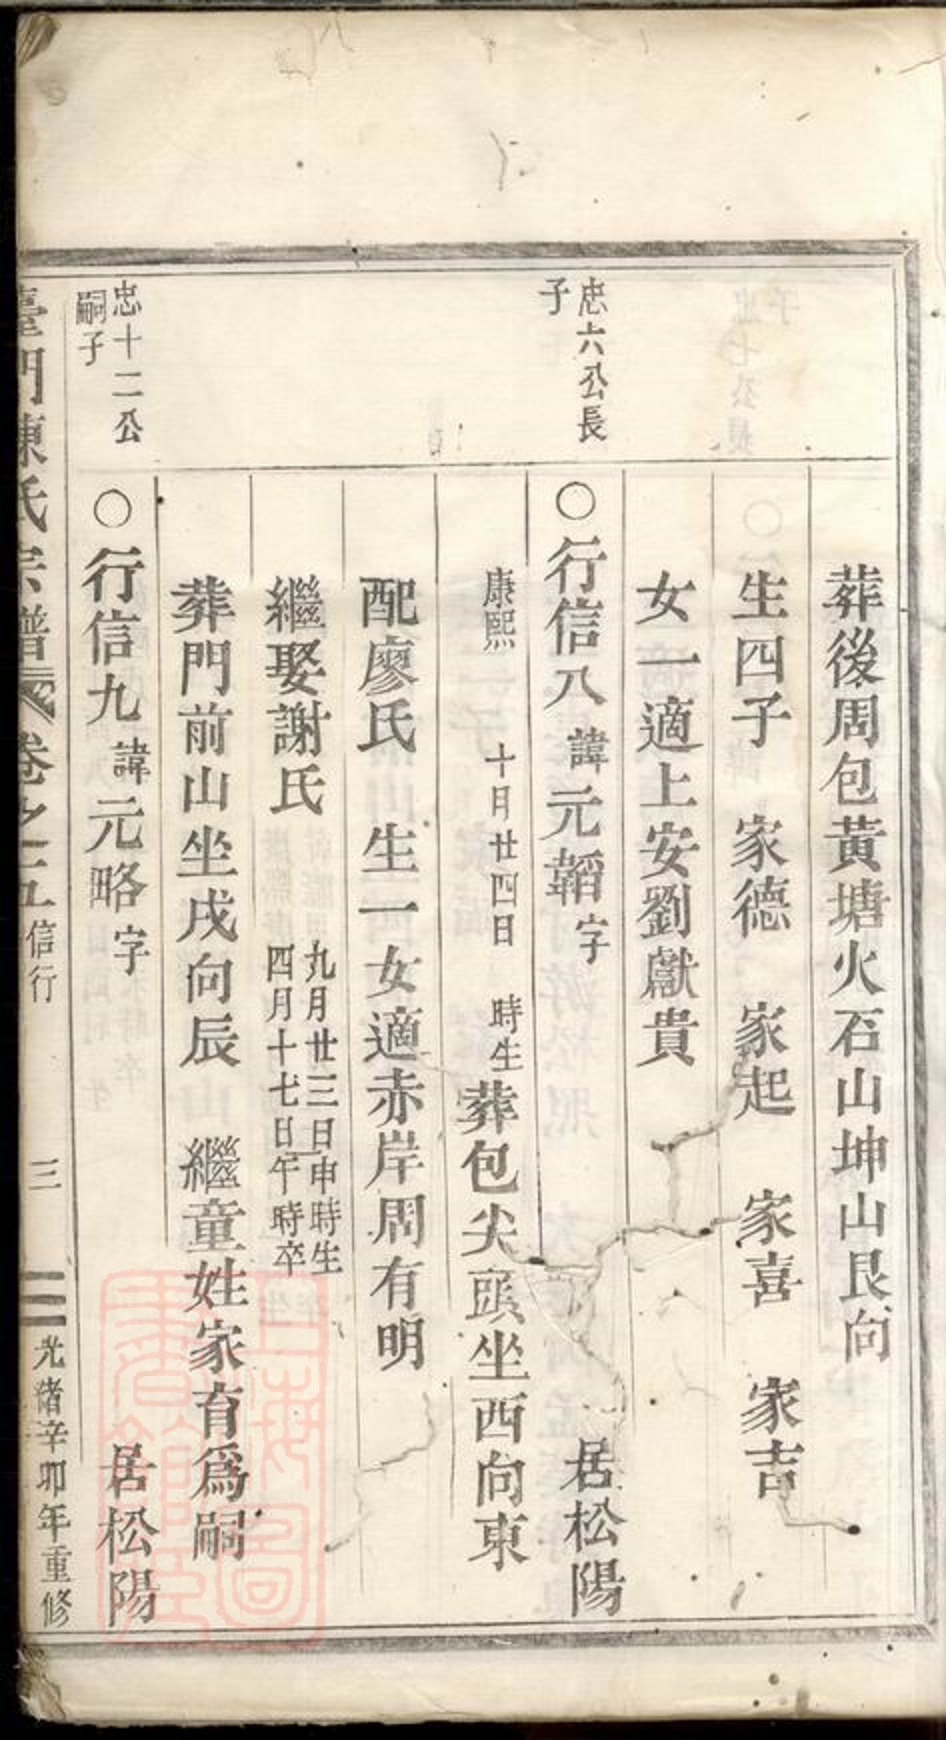 葬後周包黃塘火石山坤山艮向
生四子　家德　家起　家喜　家吉
女一適上安劉獻貴
忠六公長
子
○行信八諱元韜字　居松陽
康熙　十月廿四日　時生葬包尖頭坐西向東
配廖氏　生一女適赤岸周有明
繼娶謝氏
九月廿三日申時生
四月十七日午時卒
葬門前山坐戌向辰　繼童姓家育爲嗣
忠十二公
嗣子
○行信九諱元略字　居松陽
臺門陳氏宗譜　卷之二九　信行　三　光緒辛卯年重修
上海圖書館藏